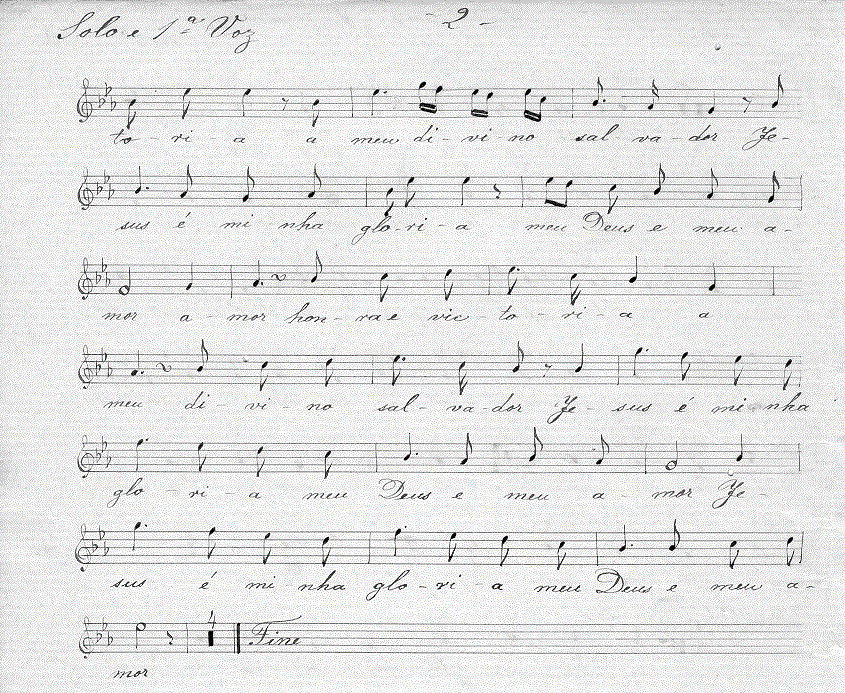 Solo e 1ª Voz
- 2 -
to - ri - a a meu di - vi - no sal va - dor Je -
sus é mi nha glo - ri - a meu Deus e meu a -
mor a - mor hon - ra e vic - to - ri - a a
meu di - vi - no sal - va - dor Je - sus é mi nha
glo - ri - a meu Deus e meu a - mor Je -
sus é mi - nha glo - ri - a meu Deus e meu a -
4 Fine
mor